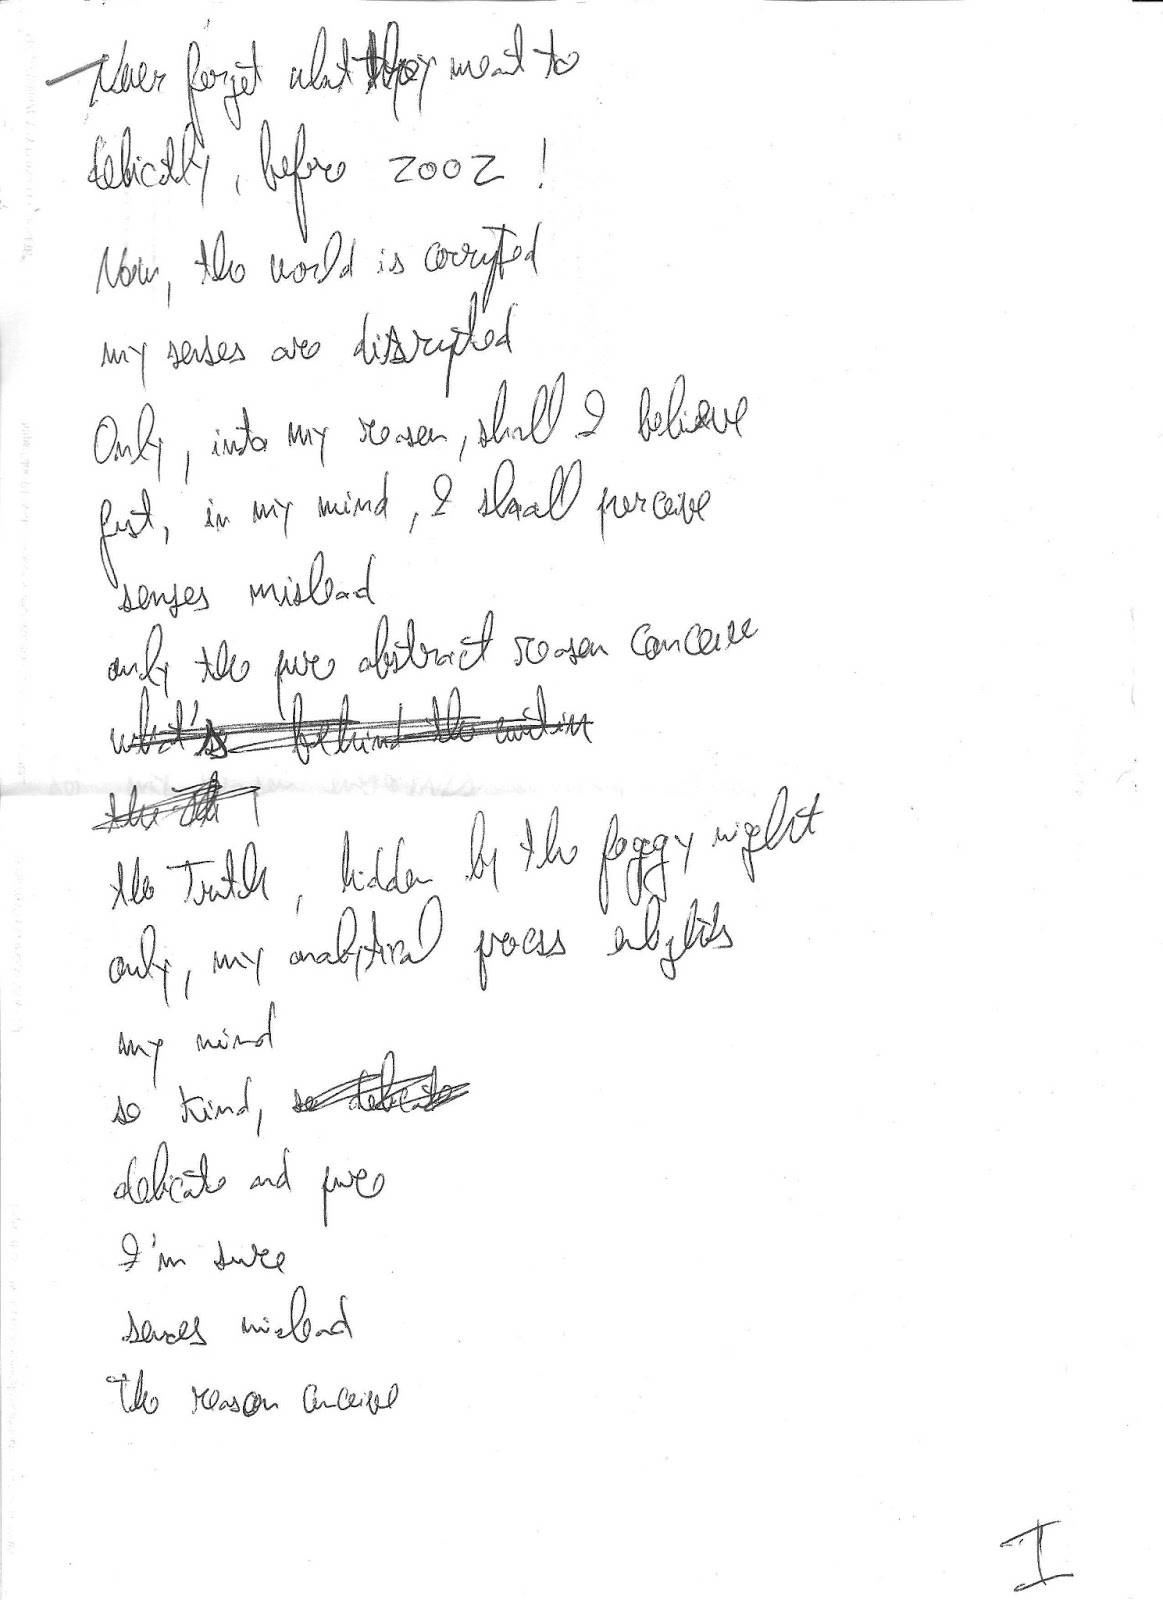 Never forget what they meant to
delicatly, before 2002!
Now, the world is corrupted
my senses are disrupted
Only, into my reason, shall I believe
just, in my mind, I shall perceive
senses mislead
only the pure abstract reason conceive
what's behind the
the
the Truth, hidden by the foggy night
only, my analytical process enlights
my mind
so kind, so delicate
delicate and pure
I'm sure
senses mislead
The reason conceive
I